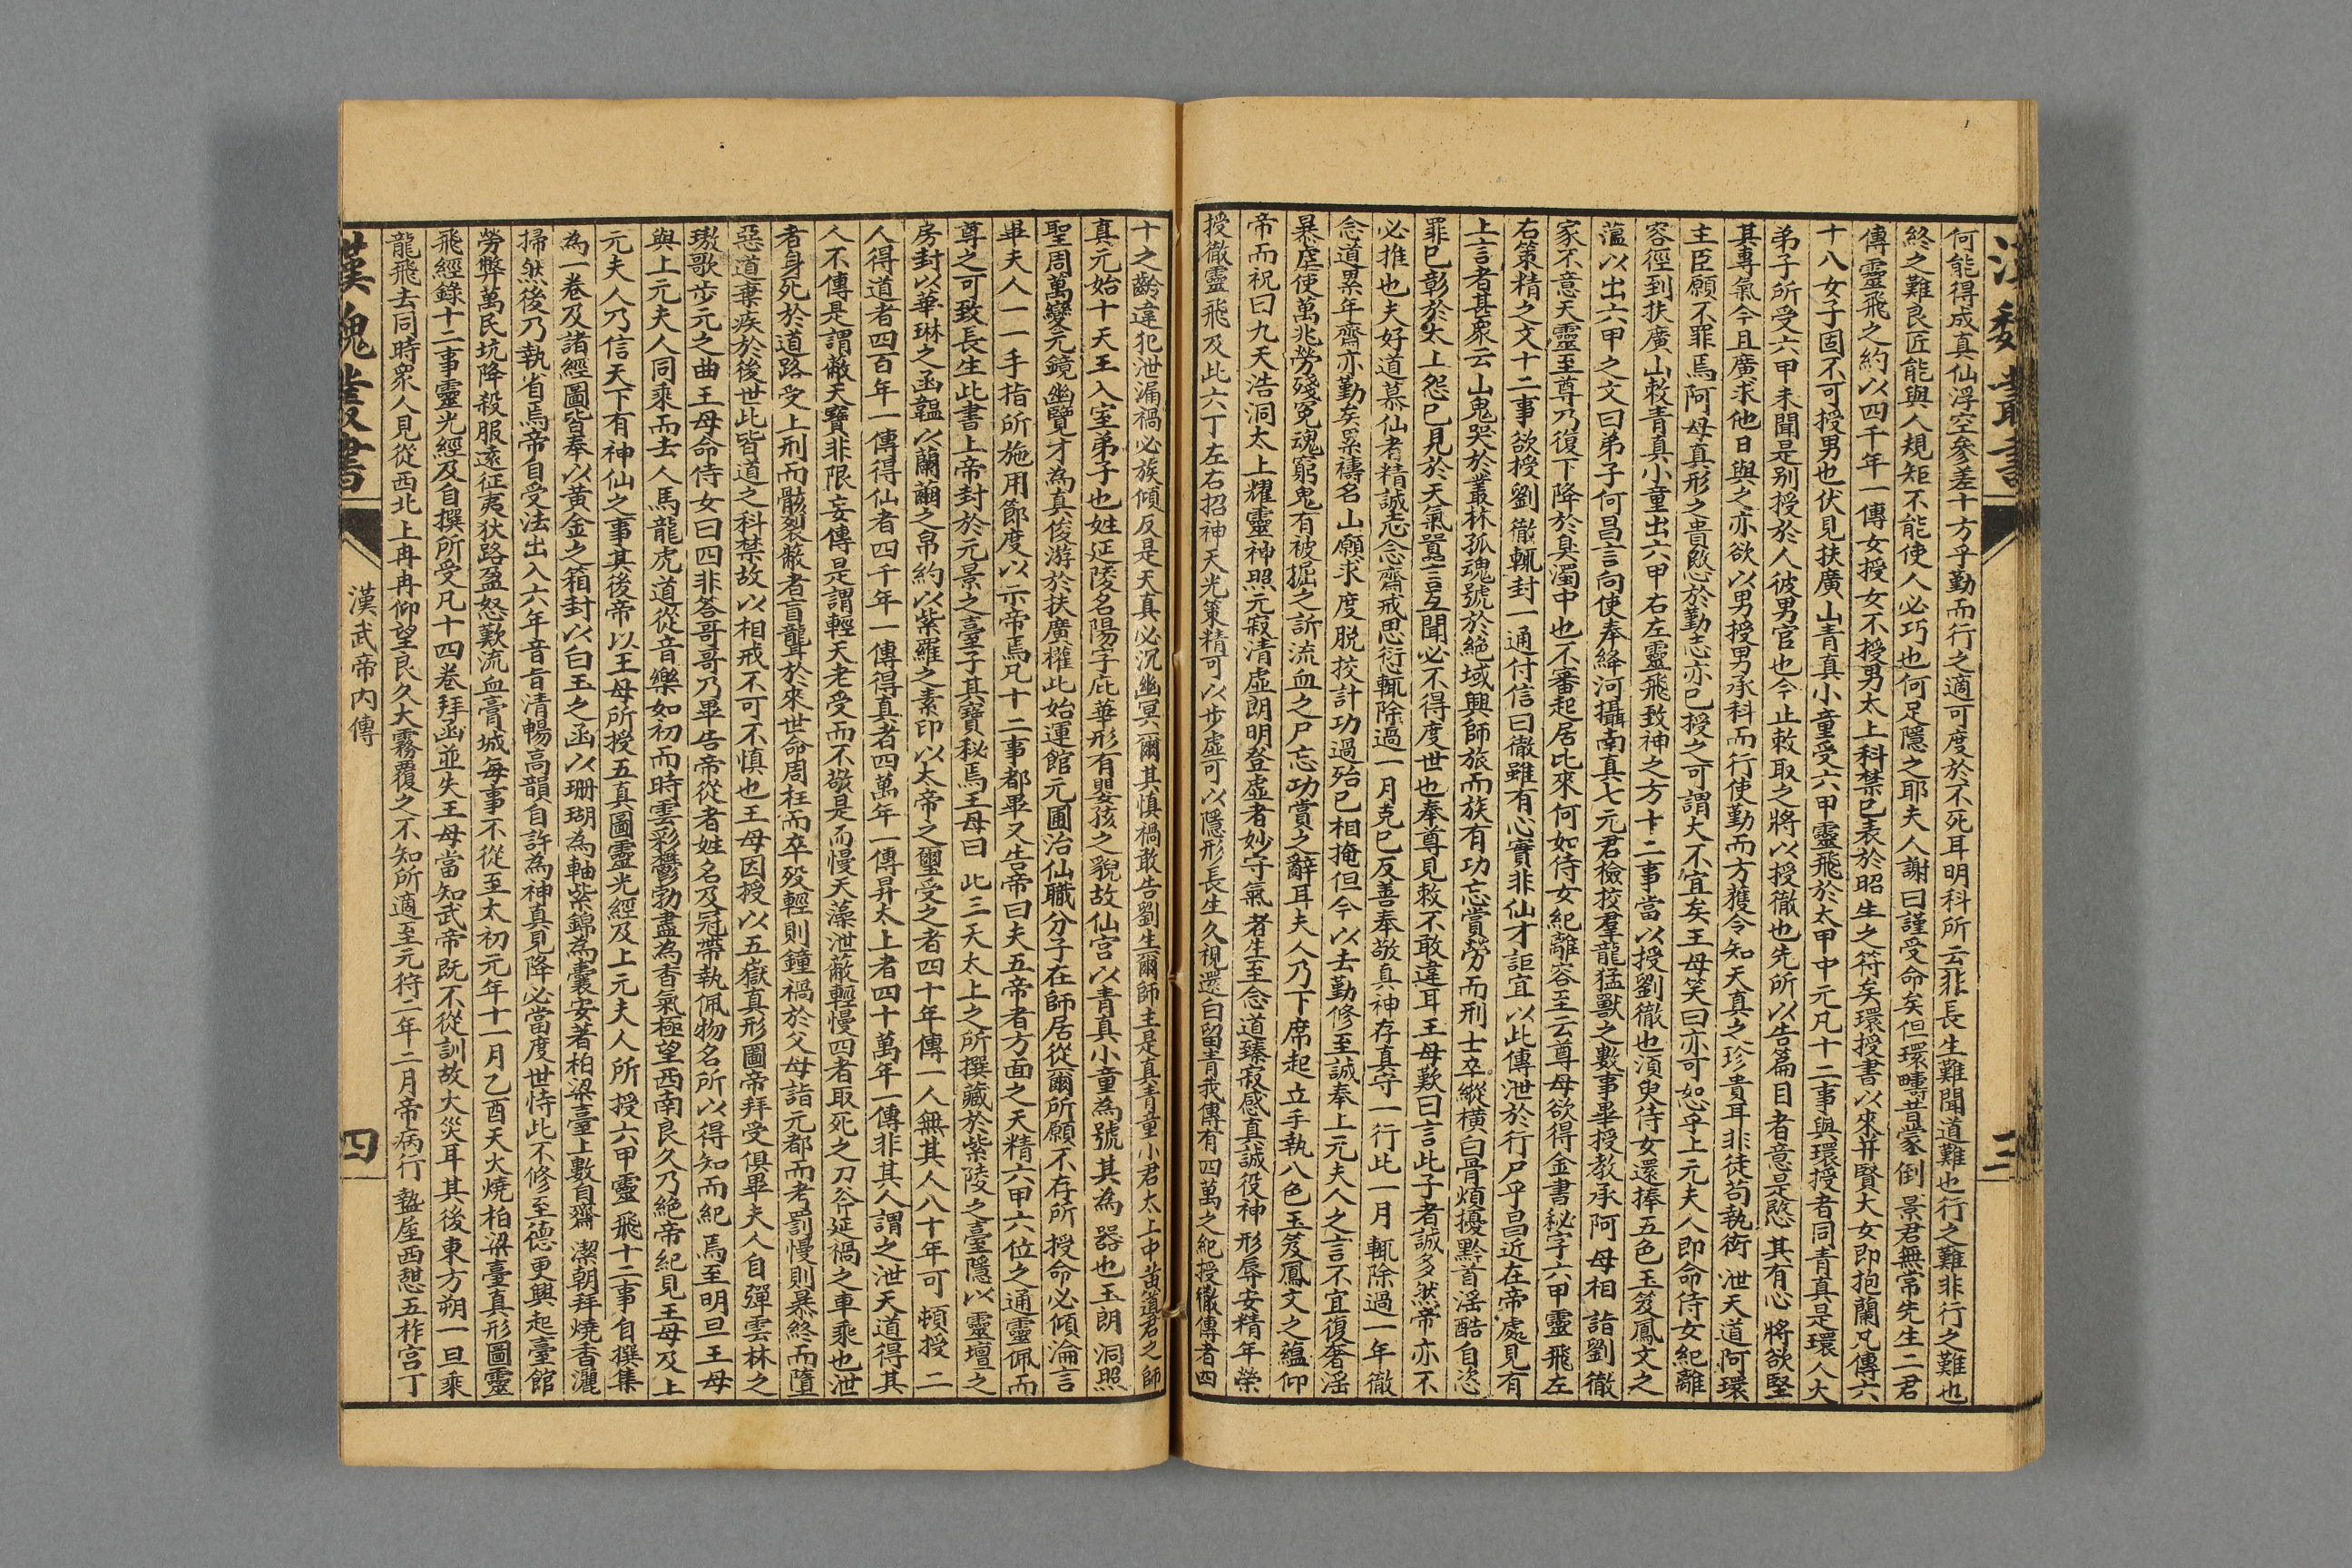 漢魏叢書
三
何能得成真仙浮空參差十方乎勤而行之適可度於不死耳明科所云非長生難聞道難也行之難非行之難也
終之難良匠能與人規矩不能使人必巧也何足隱之耶夫人謝曰謹受命矣但環疇昔蒙倒景君無常先生二君
傳靈飛之約以四千年一傳女授女不授男太上科禁已表於昭生之符矣環授書以來并賢大女即抱蘭凡傳六
十八女子固不可授男也伏見扶廣山青真小童受六甲靈飛於太甲中元凡十二事與環授者同青真是環人火
弟子所受六甲未聞是別授於人彼男官也今止敕取之將以授徹也先所以告篇目者意是愍其有心將欲堅
其專氣今且廣求他日與之亦欲以男授男承科而行使勤而方獲令知天真之珍貴耳非徒苟執衒泄天道阿環
主臣願不罪焉阿母真形之貴愍於勤志亦已授之可謂大不宜矣王母笑曰亦可恕乎上元夫人即命侍女紀離
容徑到扶廣山敕青真小童出六甲右左靈飛致神之方十二事當以授劉徹也須臾侍女還捧五色玉笈鳳文之
蘊以出六甲之文曰弟子何昌言向使奉絳河攝南真七元君檢挍羣龍猛獸之數事畢授教承阿母相詣劉徹
家不意天靈至尊乃復下降於臭濁中也不審起居比來何如侍女紀離容至云尊母欲得金書秘字六甲靈飛左
右策精之文十二事欲授劉徹輒封一通付信曰徹雖有心實非仙才詎宜以此傳泄於行尸乎昌近在帝處見有
上言者甚衆云山鬼哭於叢林孤魂號於絕域興師旅而族有功忘賞勞而刑士卒縱橫白骨煩擾黔首淫酷自恣
罪已彰於太上怨已見於天氣囂言互聞必不得度世也奉尊見敕不敢違耳王母歎曰言此子者誠多然帝亦不
必推也夫好道慕仙者精誠志念齋戒思愆輒除過一月克已反善奉敬真神存真守一行此一月輒除過一年徹
念道累年齋亦勤矣累禱名山願求度脫挍計功過殆已相掩但今以去勤修至誠奉上元夫人之言不宜復奢淫
暴虐使萬兆勞殘冤魂窮鬼有被掘之訴流血之尸忘功賞之辭耳夫人乃下席起立手執八色玉笈鳳文之蘊仰
帝而祝曰九天浩洞太上耀靈神照元寂清虛朗明登虛者妙守氣者生至念道臻寂感真誠役神形辱安精年榮
授徹靈飛及此六丁左右招神天光策精可以步虛可以隱形長生久視還白留青我傳有四萬之紀授徹傳者四
十之齡違犯泄漏禍必族傾反是天真必沉幽冥爾其慎禍敢告劉生爾師主是真青童小君太上中黃道君之師
真元始十天王入室弟子也姓延陵名陽字庇華形有嬰孩之貌故仙宮以青真小童為號其為器也玉朗洞照
聖周萬變元鏡幽覽才為真俊游於扶廣權此始運館元圃治仙職分子在師居從爾所願不存所授命必傾淪言
畢夫人一一手指所施用節度以示帝焉凡十二事都畢又告帝曰夫五帝者方面之天精六甲六位之通靈佩而
尊之可致長生此書上帝封於元景之臺子其寶秘焉王母曰此三天太上之所撰藏於紫陵之臺隱以靈壇之
房封以華琳之函韞以蘭繭之帛約以紫羅之素印以太帝之璽受之者四十年傳一人無其人八十年可頓授二
人得道者四百年一傳得仙者四千年一傳得真者四萬年一傳昇太上者四十萬年一傳非其人謂之泄天道得其
人不傳是謂蔽天寶非限妄傳是謂輕天老受而不敬是而慢天藻泄蔽輕慢四者取死之刀斧延禍之車乘也泄
者身死於道路受上刑而骸裂蔽者盲聾於來世命周枉而卒歿輕則鐘禍於父母詣元都而考罰慢則暴終而墮
惡道棄疾於後世此皆道之科禁故以相戒不可不慎也王母因授以五嶽真形圖帝拜受俱畢夫人自彈雲林之
璈歌步元之曲王母命侍女曰四非答哥哥乃畢告帝從者姓名及冠帶執佩物名所以得知而紀焉至明旦王母
與上元夫人同乘而去人馬龍虎道從音樂如初而時雲彩鬱勃盡為香氣極望西南良久乃絕帝紀見王母及上
元夫人乃信天下有神仙之事其後帝以王母所授五真圖靈光經及上元夫人所授六甲靈飛十二事自撰集
為一卷及諸經圖皆奉以黃金之箱封以白玉之函以珊瑚為軸紫錦為囊安著柏梁臺上數自齋潔朝拜燒香灑
掃然後乃執省焉帝自受法出入六年音旨清暢高韻自許為神真見降必當度世恃此不修至德更興起臺館
勞弊萬民坑降殺服遠征夷狄路盈怒歎流血膏城每事不從至太初元年十一月乙酉天火燒柏梁臺真形圖靈
飛經錄十二事靈光經及自撰所受凡十四卷并函並失王母當知武帝既不從訓故火災耳其後東方朔一旦乘
龍飛去同時眾人見從西北上冉冉仰望良久大霧覆之不知所適至元狩二年二月帝病行盩厔西憇五柞宮丁
漢魏叢書
漢武帝內傳
四